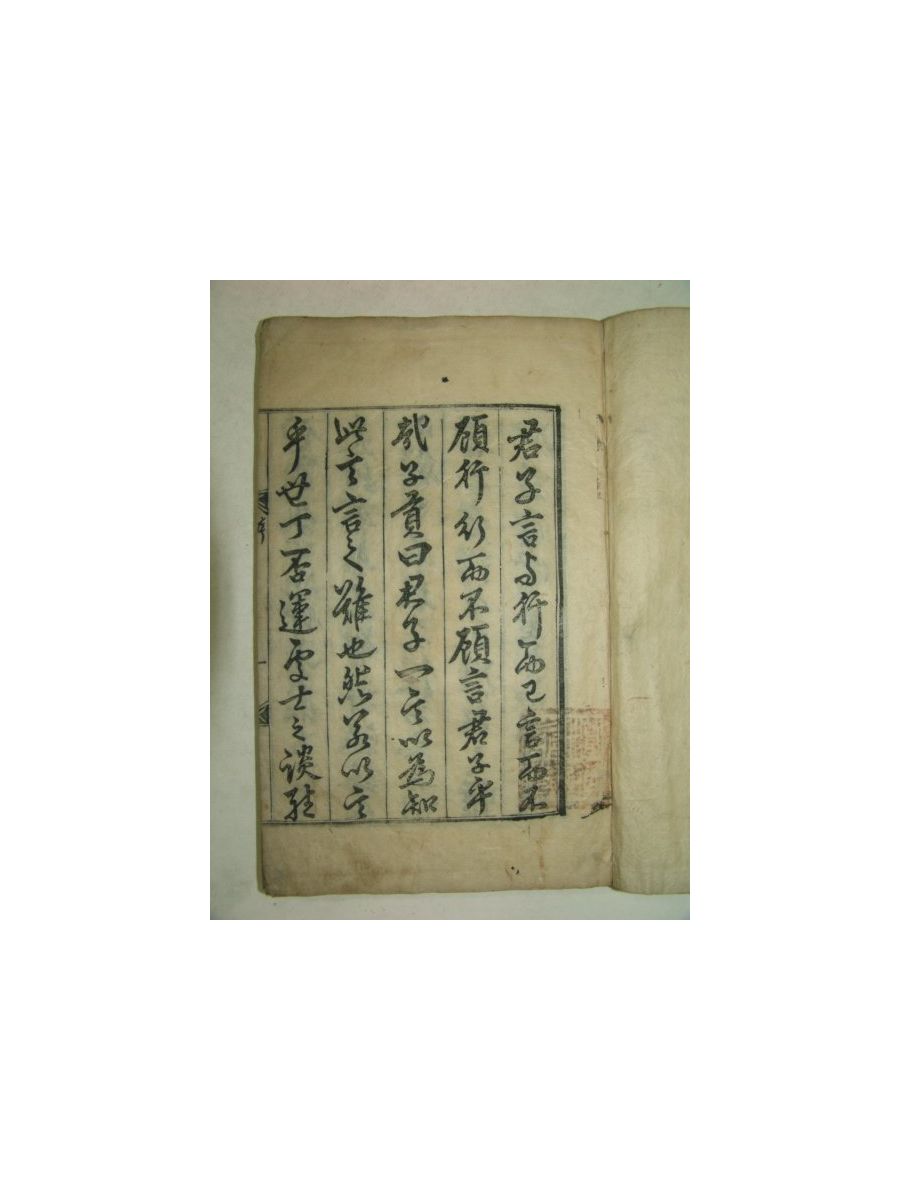 君子言与行而已言而不
顧行行而不顧言君子乎
哉子貢曰君子一言以為知
此言言之難也然若以言
乎世丁否運處士之談經
序
一